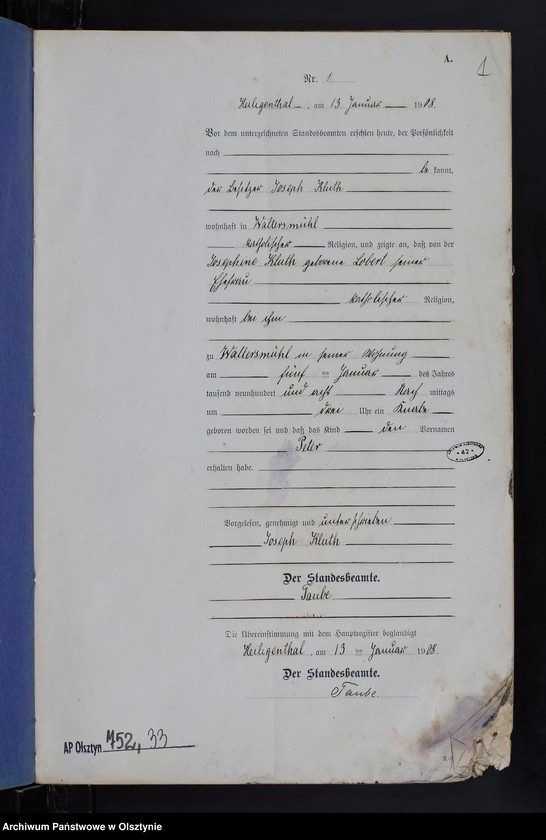 A.
1
Nr. 1
Heiligenthal, am 13 Januar 1908.
Vor dem unterzeichneten Standesbeamten erschien heute, der Persönlichkeit
nach
be kannt,
der Besitzer Joseph Kluth
wohnhaft in Waltersmühl
katholischer Religion, und zeigte an, daß von der
Josephine Kluth geborene Lobert seiner
Ehefrau
katholischer Religion,
wohnhaft bei ihm
zu Waltersmühl in seiner Wohnung
am fünf ten Januar des Jahres
tausend neunhundert und acht Nach mittags
um drei Uhr ein Knabe
geboren worden sei und daß das Kind den Vornamen
Peter
erhalten habe.
Vorgelesen, genehmigt und unterschrieben
Joseph Kluth
Der Standesbeamte.
Taube
Die Übereinstimmung mit dem Hauptregister beglaubigt
Heiligenthal, am 13 ten Januar 1908.
Der Standesbeamte.
Taube.
42
AP Olsztyn 752, 33
Archiwum Państwowe w Olsztynie